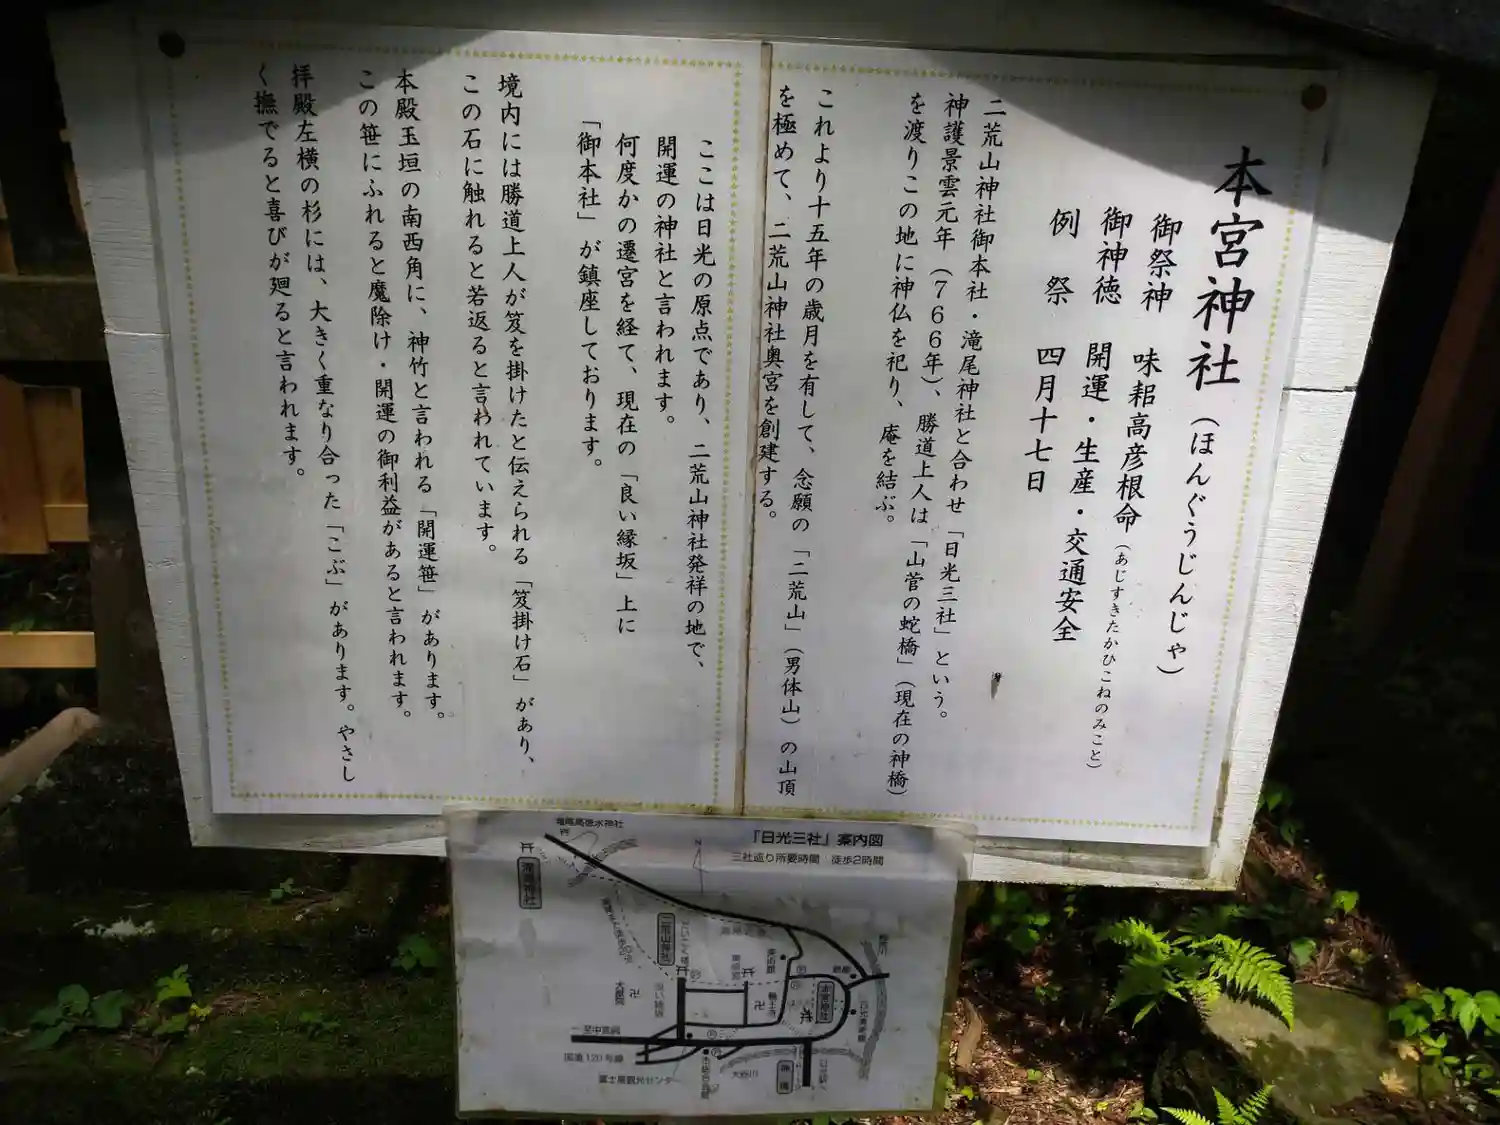 本宮神社（ほんぐうじんじゃ）
御祭神　味耜高彦根命（あじすきたかひこねのみこと）
御神徳　開運・生産・交通安全
例　祭　四月十七日
二荒山神社御本社・滝尾神社と合わせ「日光三社」という。
神護景雲元年（７６６年）、勝道上人は「山菅の蛇橋」（現在の神橋）
を渡りこの地に神仏を祀り、庵を結ぶ。
これより十五年の歳月を有して、念願の「二荒山」（男体山）の山頂
を極めて、二荒山神社奥宮を創建する。
ここは日光の原点であり、二荒山神社発祥の地で、
開運の神社と言われます。
何度かの遷宮を経て、現在の「良い縁坂」上に
「御本社」が鎮座しております。
境内には勝道上人が笈を掛けたと伝えられる「笈掛け石」があり、
この石に触れると若返ると言われています。
本殿玉垣の南西角に、神竹と言われる「開運笹」があります。
この笹にふれると魔除け・開運の御利益があると言われます。
拝殿左横の杉には、大きく重なり合った「こぶ」があります。やさし
く撫でると喜びが廻ると言われます。
「日光三社」案内図
三社巡り所要時間　徒歩2時間
滝尾神社
二荒山神社
N
美術館
東照宮
輪王寺
大猷院
本宮神社
至中宮祠
国道120号線
富士屋観光センター
大谷川
神橋